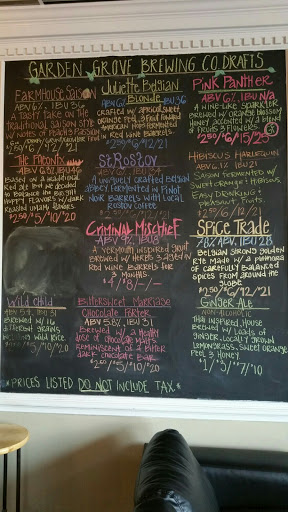 GARDEN GROVE BREWING CO. DRAFTS
FARMHOUSE SAISON
ABV 6% IBU 36
A TASTY TAKE ON THE
TRADITIONAL SAISON STYLE
W/ NOTES OF PEACH & PASSION
$2.50/$6/$12/$21
BASED ON A TRADITIONAL
RED ALE BUT WE DECIDED
HOPPY FLAVORS W/ DARK
$2.50/$5/$10/$20
WILD CHILD
ABV 5.4 IBU 31
BREWED W/
DIFFERENT
GRAINS
INCLUDING WILD RICE
$5/$10/$20
JULIETTE BELGIAN
BLONDE
ABV 6% IBU 36
CRAFTED W/ APRICOT, SWEET
ORANGE PEEL & FRUIT FINISHING
AMERICAN HOPS FERMENTED
IN RED WINE BARRELS
$2.50/$6/$12/$21
STROSTOY
A UNIQUELY CRAFTED BELGIAN
ABBEY FERMENTED IN PINOT
NOIR BARRELS WITH LOCAL
ROSTOV COFFEE
$2.50/$6/$12/$21
CRIMINAL MISCHIEF
ABV 4% IBU 8
A VERMOUTH INSPIRED GRUIT
BREWED W/ HERBS & AGED IN
RED WINE BARRELS FOR
3 MONTHS
$4/$8/-/-
BITTERSWEET MARRIAGE
CHOCOLATE PORTER
ABV 5.8% IBU 31
BREWED W/ A HEAVY
DOSE OF CHOCOLATE MALTS
REMINISCENT OF A BITTER
DARK CHOCOLATE BAR
PINK PANTHER
ABV 6% IBU N/A
A WINE-LIKE SPARKLER
BREWED W/ ORANGE BLOSSOM
HONEY ACCENTED W/ A BLEND
OF FRUITS & FLOWERS
$2.50/$6/$15/$25
HIBISCUS HARLEQUIN
ABV 6% IBU 21
SAISON FERMENTED W/
SWEET ORANGE & HIBISCUS
EASY DRINKING &
PLEASANT FRUITS.
$2.50/$6/$12/$21
SPICE TRADE
7.8% ABV, IBU 28
BELGIAN STRONG GOLDEN
RYE MADE W/ A PLETHORA
OF CAREFULLY BALANCED
SPICES FROM AROUND THE
GLOBE
$2.50/$6/$12/$21
GINGER ALE
NON-ALCOHOLIC
THAI INSPIRED, HOUSE
BREWED W/ LOADS OF
GINGER, LOCALLY GROWN
LEMONGRASS, SWEET ORANGE
PEEL & HONEY
$1/$3/$7/$10
*PRICES LISTED DO NOT INCLUDE TAX.*